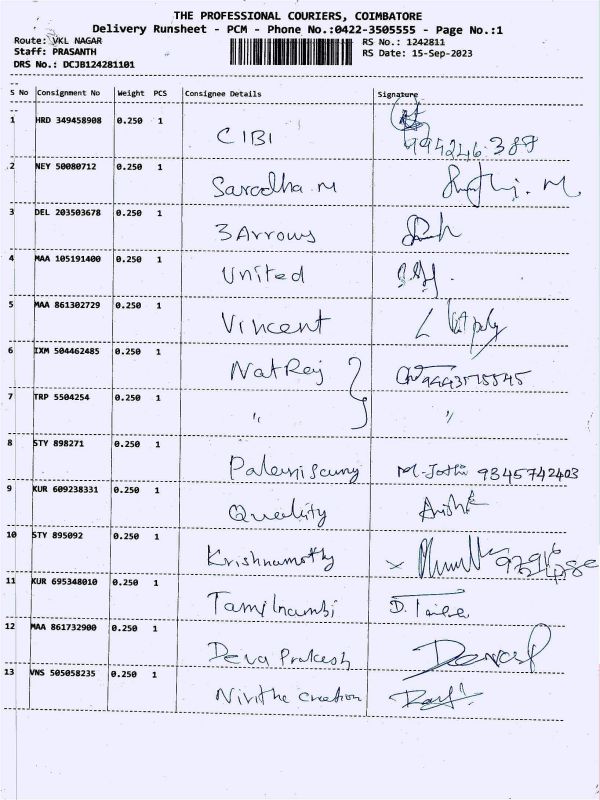 THE PROFESSIONAL COURIERS, COIMBATORE
Delivery Runsheet - PCM - Phone No.:0422-3505555 - Page No.:1
Route: VKL NAGAR RS No.: 1242811
Staff: PRASANTH RS Date: 15-Sep-2023
DRS No.: DCJB124281101
S No Consignment No Weight PCS Consignee Details Signature
1 HRD 349458908 0.250 1 CIBI
2 NEY 50080712 0.250 1 Sarodha.M
3 DEL 203503678 0.250 1 3 Arrows
4 MAA 105191400 0.250 1 United
5 MAA 861302729 0.250 1 Vincent
6 IXM 504462485 0.250 1 NatRaj
7 TRP 5504254 0.250 1 " "
8 STY 898271 0.250 1 Palaniscumy M-Jothi 9345742403
9 KUR 609238331 0.250 1 Quality
10 STY 895092 0.250 1 Krishnamothy
11 KUR 695348010 0.250 1 Tamilnambi
12 MAA 861732900 0.250 1 Deva Prakesh
13 VNS 505058235 0.250 1 Nivithe creation